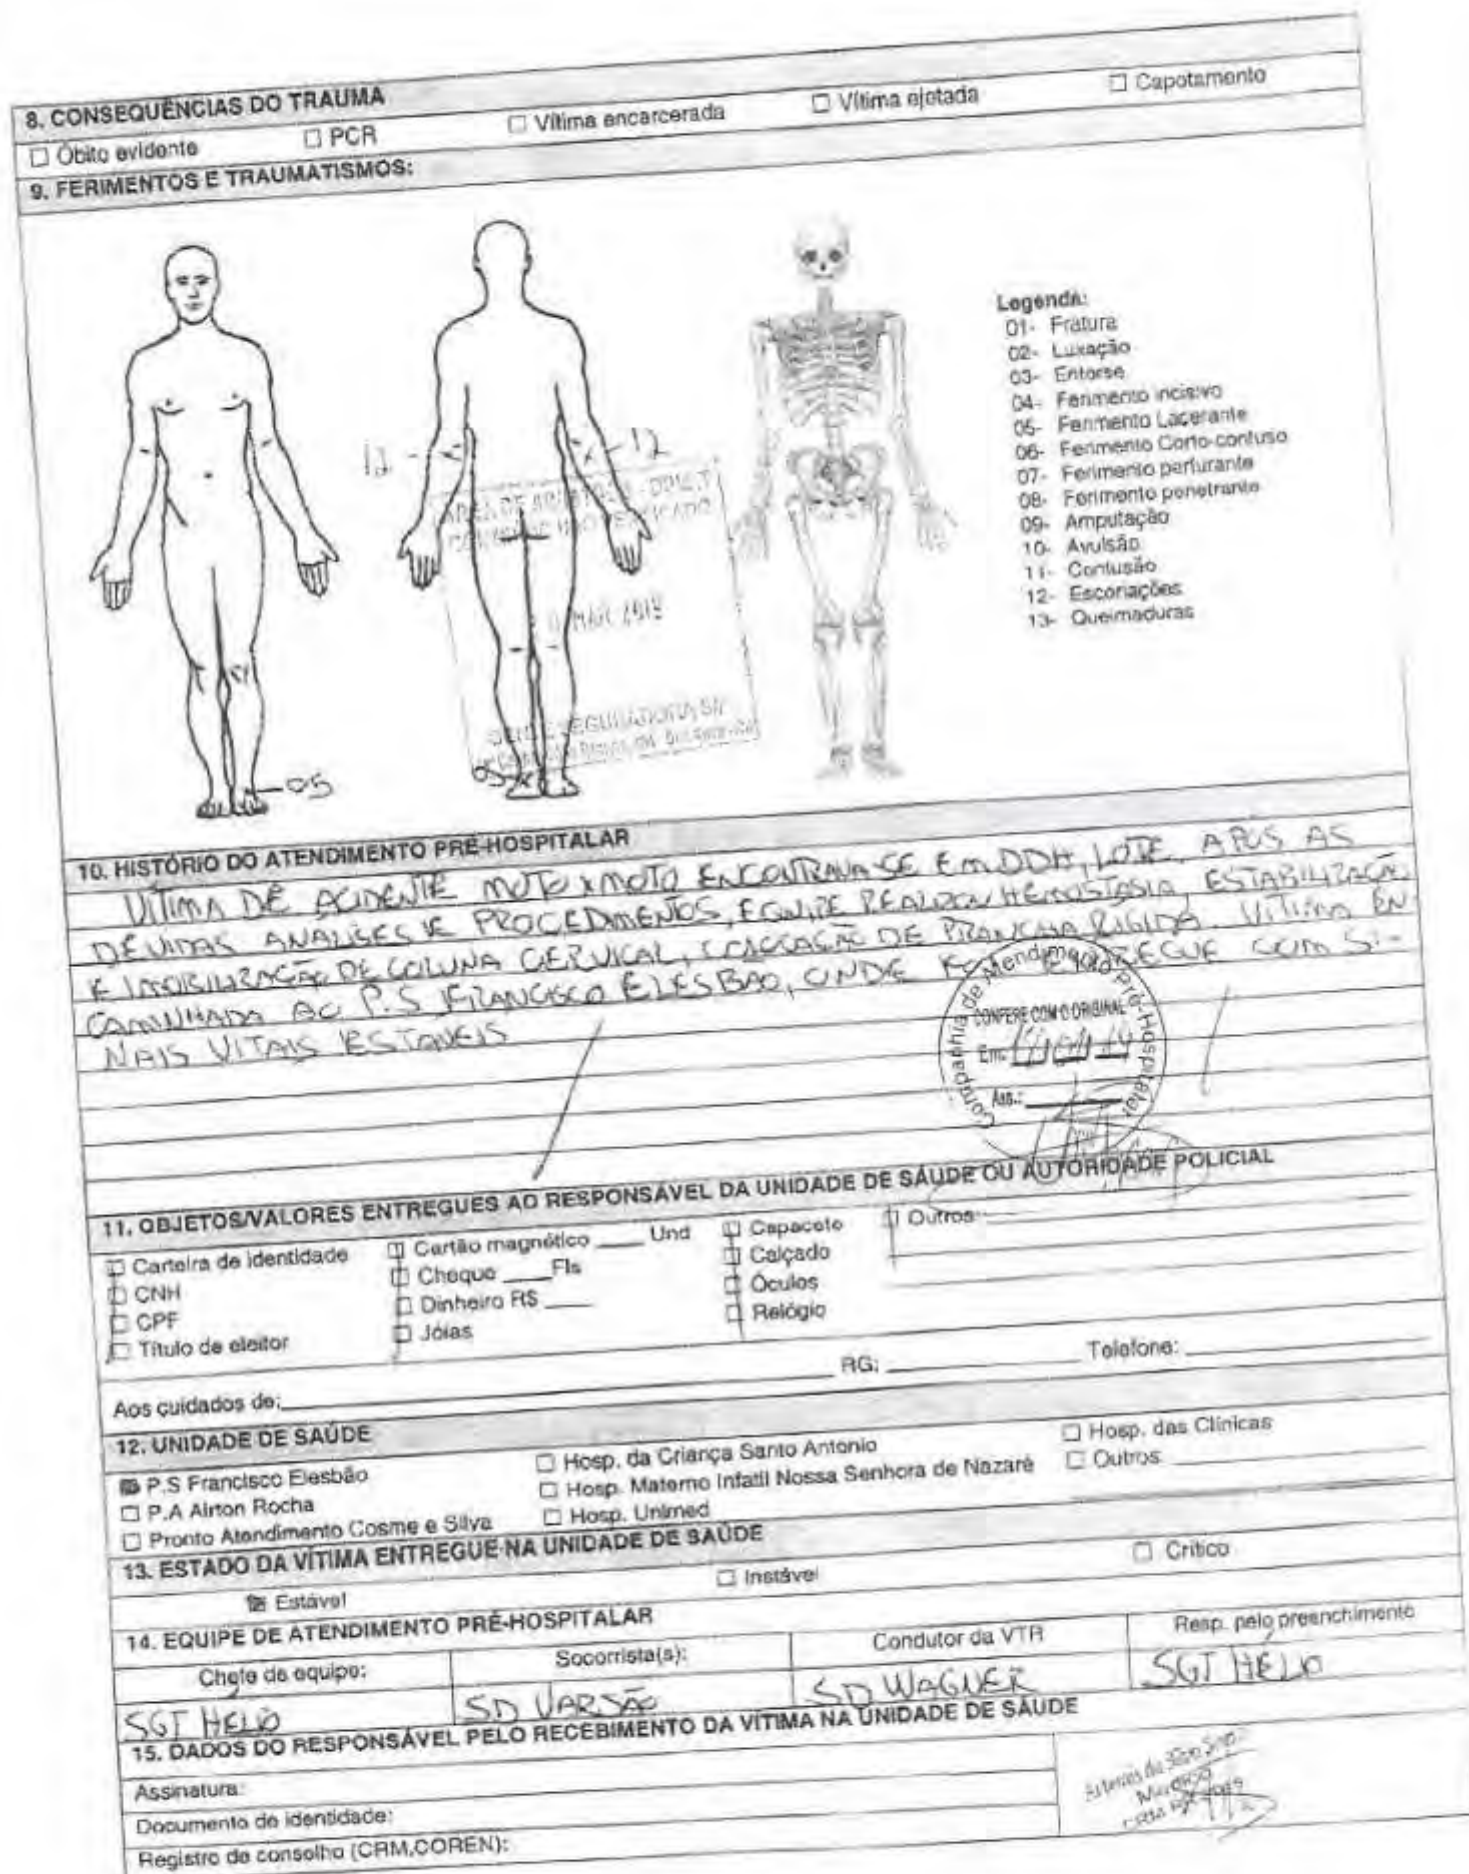 8. CONSEQUÊNCIAS DO TRAUMA
☐ Óbito evidente ☐ PCR ☐ Vítima encarcerada ☐ Vítima ejetada ☐ Capotamento
9. FERIMENTOS E TRAUMATISMOS:
Legenda:
01- Fratura
02- Luxação
03- Entorse
04- Ferimento incisivo
05- Ferimento Lacerante
06- Ferimento Corto-contuso
07- Ferimento perfurante
08- Ferimento penetrante
09- Amputação
10- Avulsão
11- Contusão
12- Escoriações
13- Queimaduras
12 - 12
MAR 2019
SEGURADORA S/A
05 05
10. HISTÓRIO DO ATENDIMENTO PRÉ-HOSPITALAR
VITIMA DE ACIDENTE MOTO X MOTO ENCONTRAVA-SE EM DDH, LOTE, APÓS AS
DEVIDAS ANALISES E PROCEDIMENTOS, EQUIPE REALIZOU HEMOSTASIA, ESTABILIZAÇÃO
E IMOBILIZAÇÃO DE COLUNA CERVICAL, COLOCAÇÃO DE PRANCHA RIGIDA. VITIMA EN-
CAMINHADA AO P.S FRANCISCO ELESBAO, ONDE ENTREGUE COM SI-
NAIS VITAIS ESTAVEIS
Companhia de Atendimento Pré-Hospitalar
CONFERE COM O ORIGINAL
Em:
Ass.:
11. OBJETOS/VALORES ENTREGUES AO RESPONSÁVEL DA UNIDADE DE SAÚDE OU AUTORIDADE POLICIAL
☐ Carteira de identidade ☐ Cartão magnético ____ Und ☐ Capacete ☐ Outros
☐ CNH ☐ Cheque ____Fls ☐ Calçado
☐ CPF ☐ Dinheiro R$ ____ ☐ Óculos
☐ Título de eleitor ☐ Jóias ☐ Relógio
Aos cuidados de: RG: Telefone:
12. UNIDADE DE SAÚDE
☒ P.S Francisco Elesbão ☐ Hosp. da Criança Santo Antonio ☐ Hosp. das Clínicas
☐ P.A Airton Rocha ☐ Hosp. Materno Infatil Nossa Senhora de Nazaré ☐ Outros
☐ Pronto Atendimento Cosme e Silva ☐ Hosp. Unimed
13. ESTADO DA VÍTIMA ENTREGUE NA UNIDADE DE SAÚDE
☒ Estável ☐ Instável ☐ Crítico
14. EQUIPE DE ATENDIMENTO PRÉ-HOSPITALAR
Chefe de equipe: Socorrista(s): Condutor da VTR Resp. pelo preenchimento
SGT HÉLIO SD VARSÃO SD WAGNER SGT HÉLIO
15. DADOS DO RESPONSÁVEL PELO RECEBIMENTO DA VÍTIMA NA UNIDADE DE SAÚDE
Assinatura:
Documento de identidade:
Registro de conselho (CRM,COREN):